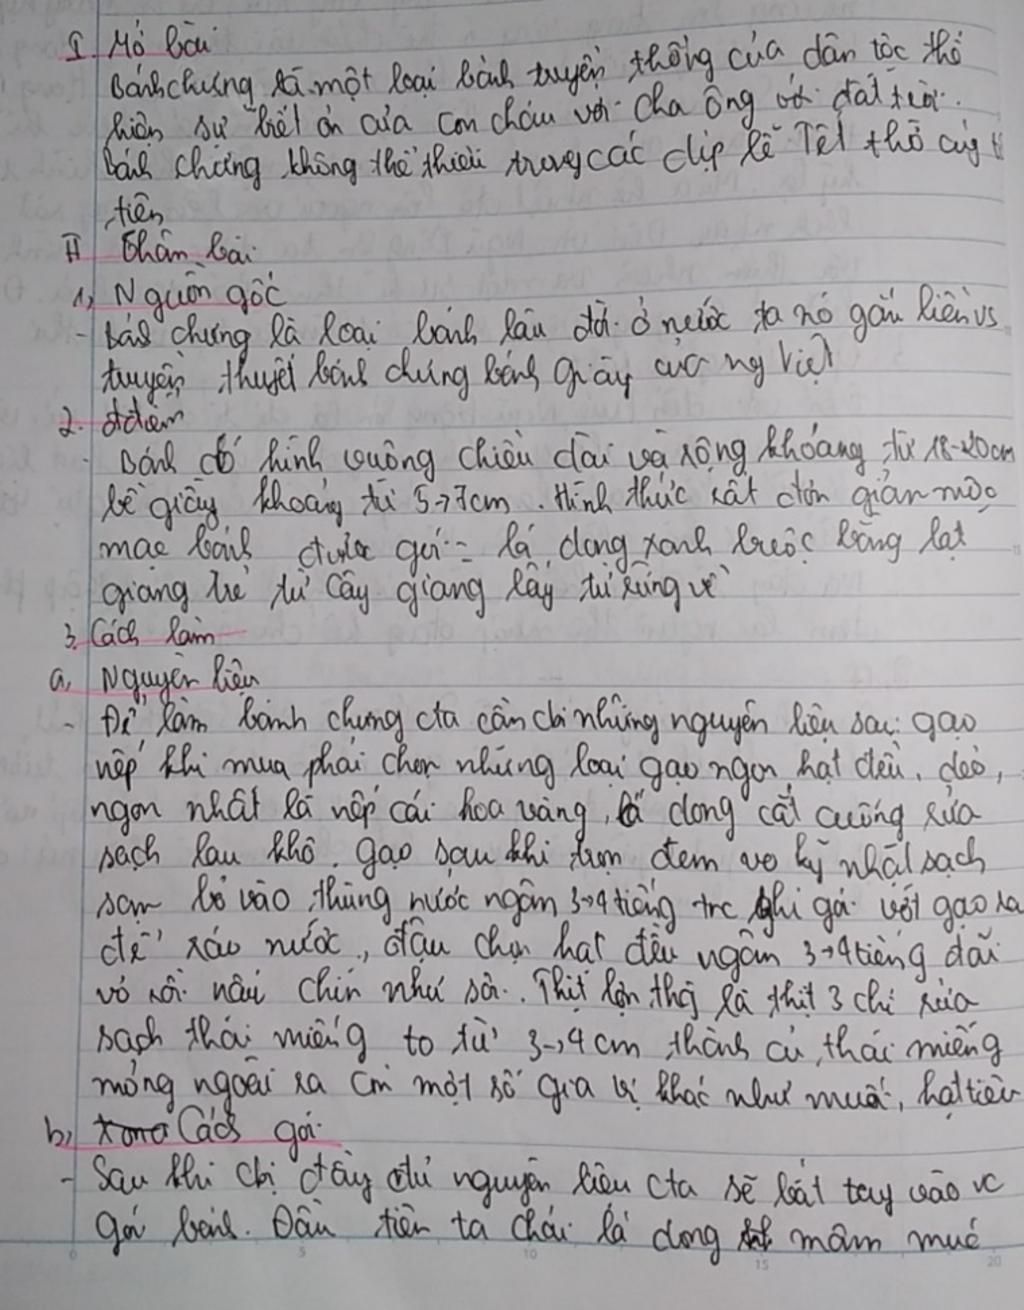 I Mở bài
Bánh chưng là một loại bánh truyền thống của dân tộc thể
hiện sự biết ơn của con cháu với cha ông với đất trời.
Bánh chưng không thể thiếu trong các dịp lễ Tết thờ cúng t
tiên
II Thân bài
1, Nguồn gốc
- Bánh chưng là loại bánh lâu đời ở nước ta nó gắn liền vs
truyền thuyết bánh chưng bánh giầy của ng Việt
2. đđiểm
- Bánh có hình vuông chiều dài và rộng khoảng từ 18-20cm
bề giầy khoảng từ 5→7cm. Hình thức rất đơn giản mộc
mạc bánh được gói = lá dong xanh buộc bằng lạt
giang trẻ từ cây giang lấy từ rừng về
3. Cách làm
a, Nguyên liệu
- Để làm bánh chưng cta cần cbị những nguyên liệu sau: gạo
nếp khi mua phải chọn những loại gạo ngon hạt đều, dẻo,
ngon nhất là nếp cái hoa vàng, lá dong cắt cuống rửa
sạch lau khô. gạo sau khi trọn đem vo kỹ nhặt sạch
sạn bỏ vào thùng nước ngâm 3→4 tiếng trc khi gói vớt gạo ra
để ráo nước, đậu chọn hạt đều ngâm 3→4 tiếng đãi
vỏ rồi nấu chín như sôi. Thịt lợn là thịt 3 chỉ rửa
sạch thái miếng to từ 3→4 cm thành củ thái miếng
mỏng ngoài ra còn một số gia vị khác như muối, hạt tiêu
b, Cách gói
- Sau khi cbị đầy đủ nguyên liệu cta sẽ bắt tay vào vc
gói bánh. Đầu tiên ta chải lá dong mâm